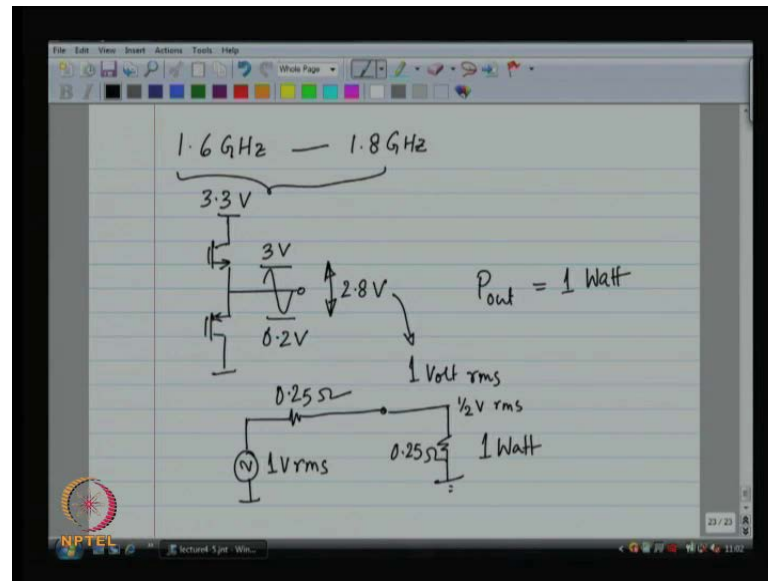 File Edit View Insert Actions Tools Help
Whole Page
B I
1.6 GHz — 1.8 GHz
3.3 V
3V
2.8 V
Pout = 1 Watt
0.2V
1 Volt rms
0.25 Ω
1/2 V rms
0.25Ω
1 Watt
1 V rms
23 / 23
NPTEL
lecture4_5.jnt - Win...
11:02